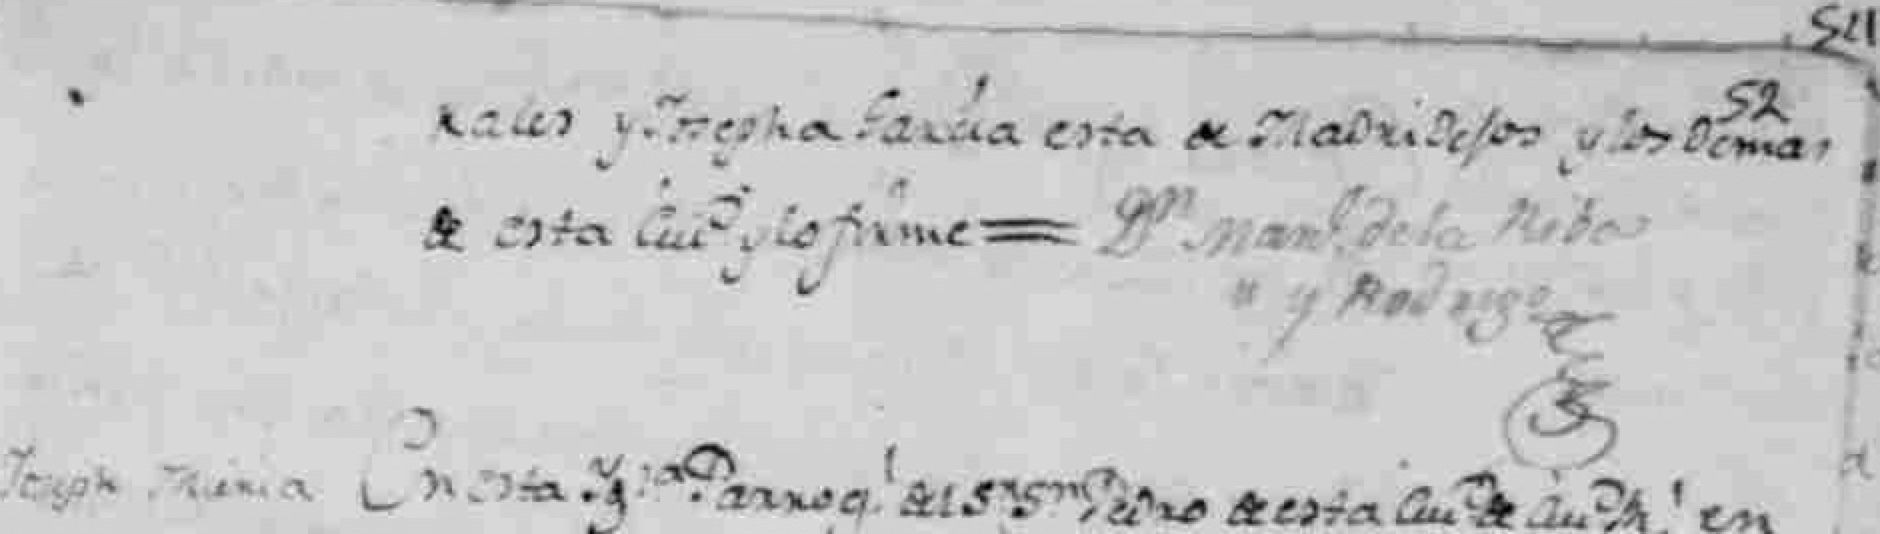 511
52
rales y Josepha Garcia esta de Madridejos y los demas
de esta Ciud. y lo firme = Dn. Manl. de la Riba
y Rodrigo
Joseph Maria En esta Yga. Parroql. del Sr. Sn. Pedro de esta Ciud. de Ciud. Rl. en